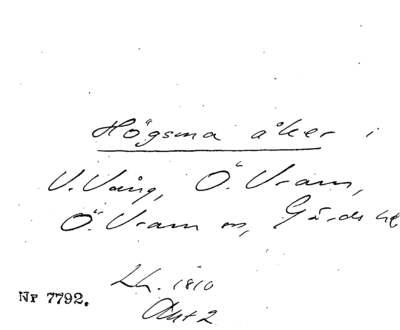 Högsma åker i
V. Vång, Ö. Vram,
Ö. Vram sn, Gärds hd
Lh. 1810
Akt 2
Nr 7792.